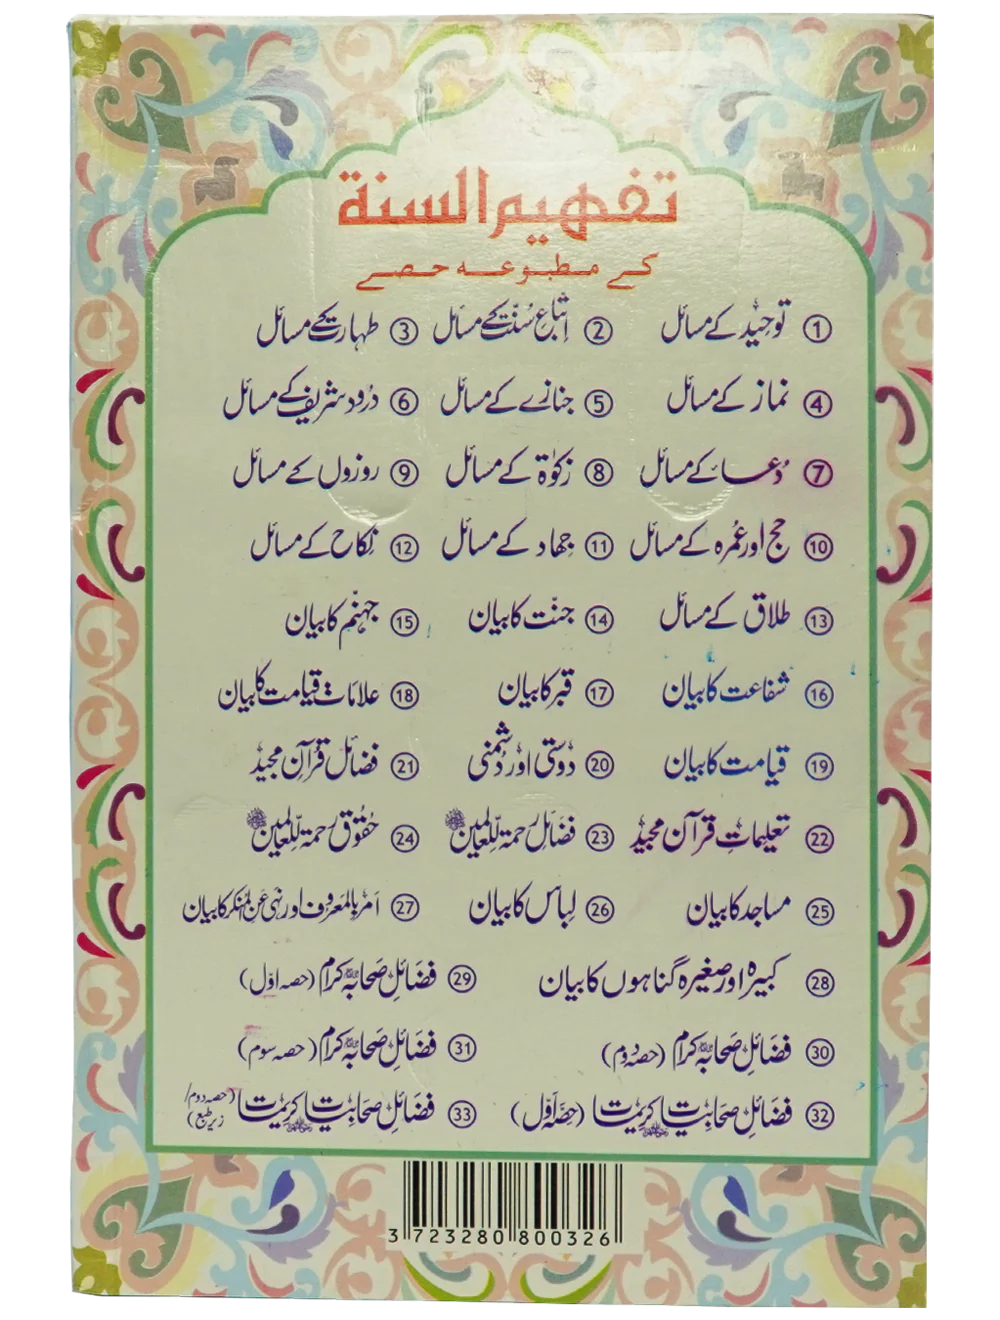 تفہیم السنۃ
کے مطبوعہ حصے
① توحید کے مسائل ② اتباع سُنّت کے مسائل ③ طہارت کے مسائل
④ نماز کے مسائل ⑤ جنازے کے مسائل ⑥ دُرُود شریف کے مسائل
⑦ دُعا کے مسائل ⑧ زکوٰۃ کے مسائل ⑨ روزوں کے مسائل
⑩ حج اور عُمرہ کے مسائل ⑪ جھاد کے مسائل ⑫ نِکاح کے مسائل
⑬ طلاق کے مسائل ⑭ جنّت کا بیان ⑮ جہنّم کا بیان
⑯ شفاعت کا بیان ⑰ قبر کا بیان ⑱ علاماتِ قیامت کا بیان
⑲ قیامت کا بیان ⑳ دوستی اور دُشمنی ㉑ فضائلِ قُرآن مجید
㉒ تعلیماتِ قرآن مجید ㉓ فضائلِ رحمۃ للعالمین ﷺ ㉔ حقوق رحمۃ للعالمین ﷺ
㉕ مساجد کا بیان ㉖ لِباس کا بیان ㉗ امر بالمعروف اور نہی عن المنکر کا بیان
㉘ کبیرہ اور صغیرہ گناہوں کا بیان ㉙ فضائلِ صحابہ کرام (حصہ اوّل)
㉚ فضائلِ صحابہ کرام (حصہ دوم) ㉛ فضائلِ صحابہ کرام (حصہ سوم)
㉜ فضائلِ صحابیات کریمات (حصّہ اَوّل) ㉝ فضائلِ صحابیات کریمات (حصہ دوم/زیر طبع)
3 723280 800326